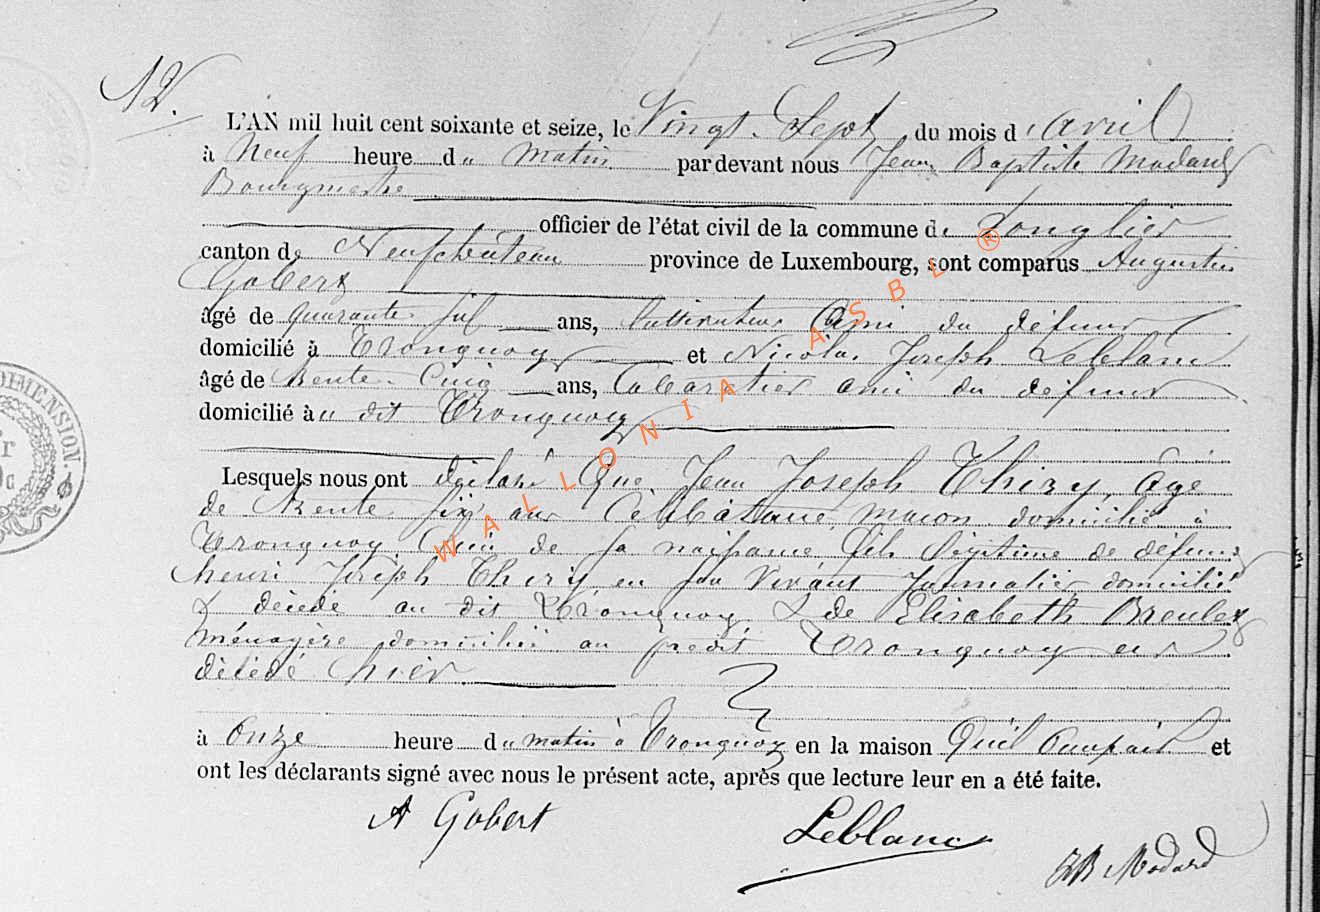 12.
L'AN mil huit cent soixante et seize, le Vingt-Sept du mois d'avril
à Neuf heure du matin par devant nous Jean Baptiste Modard
Bourgmestre
officier de l'état civil de la commune de Longlier
canton de Neufchâteau province de Luxembourg, sont comparus Augustin
Gobert
âgé de quarante six ans, Cultivateur Ami du défunt
domicilié à Tronquoy et Nicolas Joseph Leblanc
âgé de trente-Cinq ans, Cabaretier ami du défunt
domicilié àu dit Tronquoy
Lesquels nous ont déclaré Que Jean Joseph Thiry, âgé
de Trente six ans Célibataire, maçon domicilié à
Tronquoy, lieu de sa naissance, fils légitime de défunt
henri Joseph Thiry, en son vivant Journalier domicilié
& décédé au dit Tronquoy, & de Elisabeth Breulet
ménagère domiciliée au predit Tronquoy est
décédé hier.
à Onze heure du matin à Tronquoy en la maison Qu'il occupait et
ont les déclarants signé avec nous le présent acte, après que lecture leur en a été faite.
A Gobert
Leblanc
JB Modard
DIMENSION.
WALLONIA ASBL ®